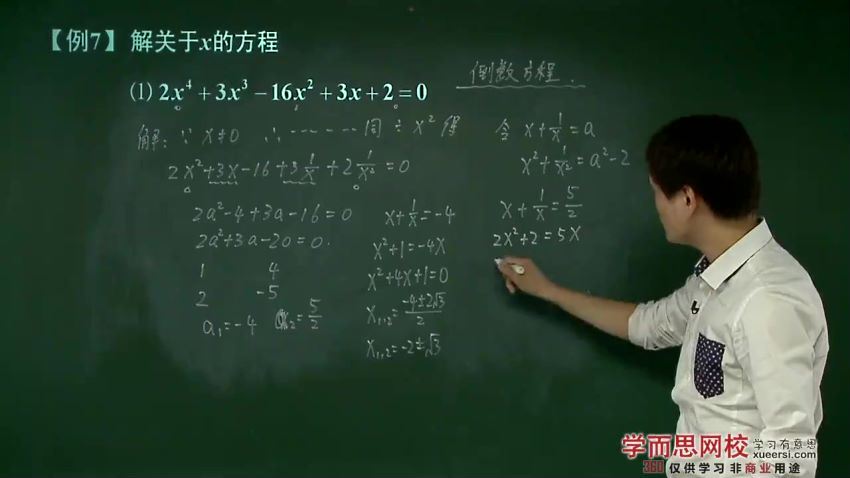 【例7】 解关于x的方程
倒数方程.
(1) 2x⁴+3x³−16x²+3x+2=0
解: ∵ x≠0 ∴ ------ 同÷x² 得
2x²+3x-16+3 1/x+2 1/x²=0
2a²-4+3a-16=0
2a²+3a-20=0.
1 4
2 -5
a₁=-4 a₂=5/2
x+1/x=-4
x²+1=-4x
x²+4x+1=0
x₁,₂=(-4±2√3)/2
x₁,₂=-2±√3
令 x+1/x=a
x²+1/x²=a²-2
x+1/x=5/2
2x²+2=5x
学而思网校 学习有意思
xueersi.com
360 仅供学习 非商业用途